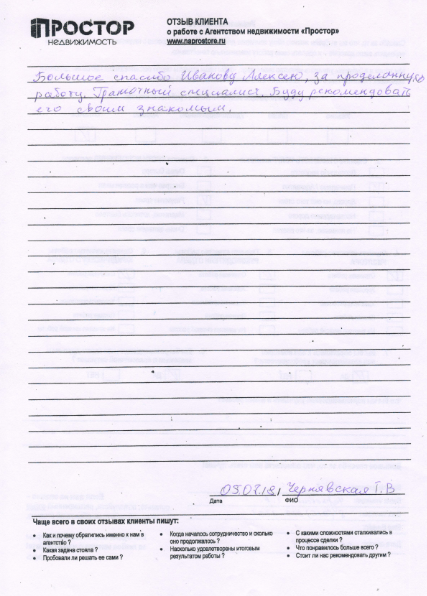 ПРОСТОР
НЕДВИЖИМОСТЬ
ОТЗЫВ КЛИЕНТА
о работе с Агентством недвижимости «Простор»
www.naprostore.ru
Большое спасибо Иванову Алексею, за проделанную
работу. Грамотный специалист. Буду рекомендовать
его своим знакомым.
Чернявская Г.В
Дата ФИО
Чаще всего в своих отзывах клиенты пишут:
• Как и почему обратились именно к нам в
агентство ?
• Какая задача стояла ?
• Пробовали ли решать ее сами ?
• Когда началось сотрудничество и сколько
оно продолжалось ?
• Насколько удовлетворены итоговым
результатом работы ?
• С какими сложностями сталкивались в
процессе сделки ?
• Что понравилось больше всего ?
• Стоит ли нас рекомендовать другим ?